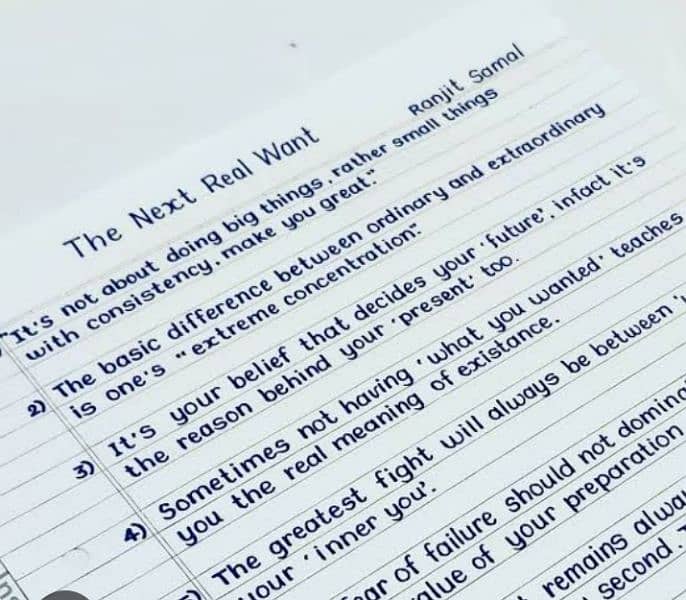 Ranjit Samal
The Next Real Want
"It's not about doing big things, rather small things
with consistency, make you great."
2) The basic difference between ordinary and extraordinary
is one's "extreme concentration".
3) It's your belief that decides your 'future', infact it's
the reason behind your 'present' too.
4) Sometimes not having 'what you wanted' teaches
you the real meaning of existance.
The greatest fight will always be between '
your 'inner you'.
of failure should not
of your preparation
remains
second.